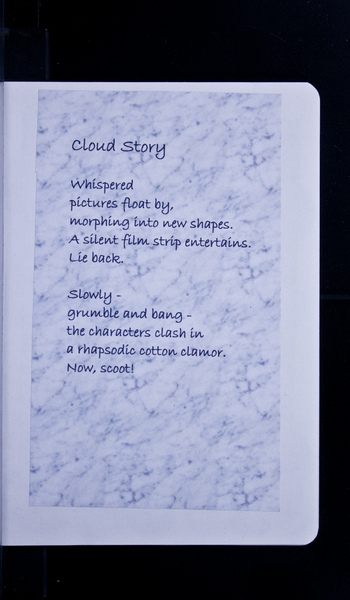 Cloud Story
Whispered
pictures float by,
morphing into new shapes.
A silent film strip entertains.
Lie back.
Slowly -
grumble and bang -
the characters clash in
a rhapsodic cotton clamor.
Now, scoot!